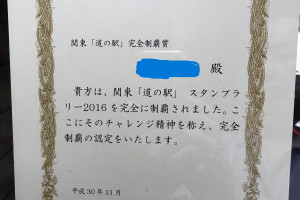 関東「道の駅」完全制覇賞
殿
貴方は、関東「道の駅」 スタンプラ
リー2016を完全に制覇されました。こ
こにそのチャレンジ精神を称え、完全
制覇の認定をいたします。
平成30年11月